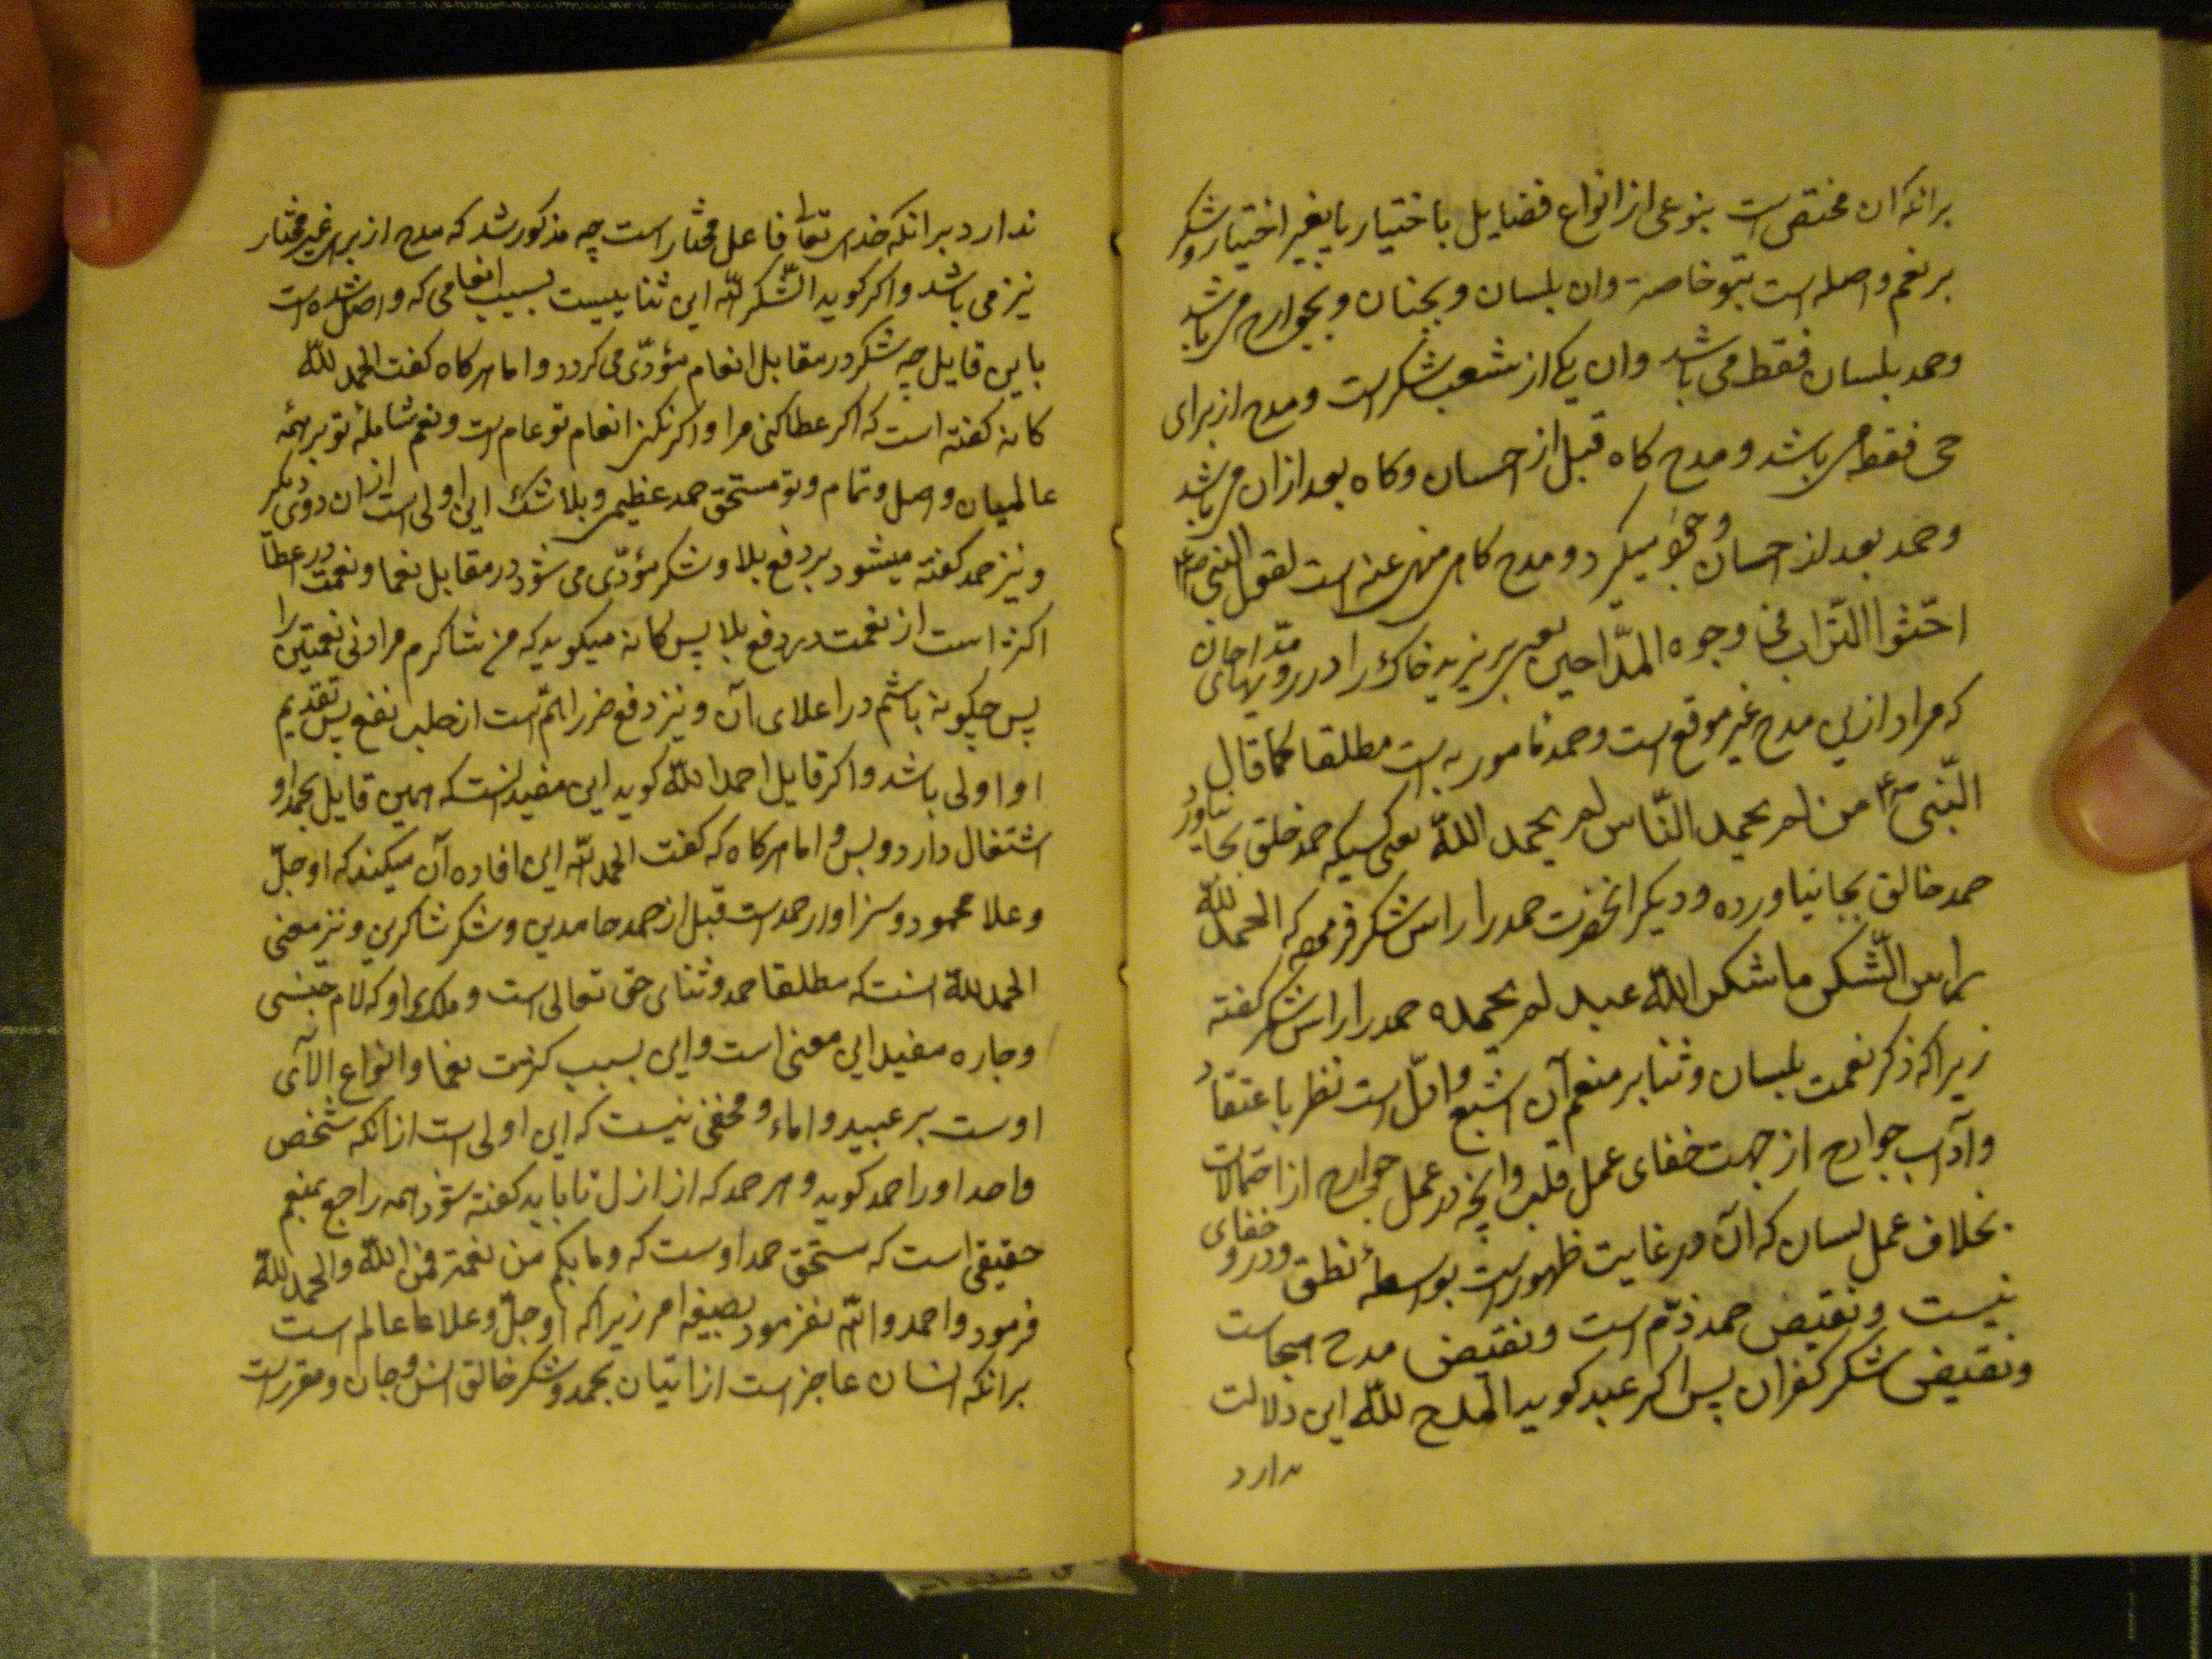 برانکه ان مختص است بنوعی از انواع فضایل باختیار یا بغیر اختیار و شکر
بر نعم واصله است بتو خاصة وان بلسان و بجنان و بجوارح می باشد
وحمد بلسان فقط می باشد وان یکی از شعب شکر است و مدح از برای
حی فقط می باشد و مدح کاه قبل از احسان و کاه بعد از ان می باشد
وحمد بعد از احسان وجوبا میکردد و مدح کاهی منهی عنه است لقول النبی صلعم
احثوا التراب فی وجوه المدّاحین یعنی بریزید خاک را در رویهای مدّاحان
که مراد ازین مدح غیر موقع است وحمد مامور به است مطلقا کما قال
النّبی صلعم من لم یحمد النّاس لم یحمد اللّه یعنی کسیکه حمد خلق بجا نیاورد
حمد خالق بجا نیاورده و دیکر انحضرت حمد را راس شکر فرموده که الحمد للّه
راس الشّکر ما شکر اللّه عبد لم یحمده حمد را راس شکر کفته
زیرا که ذکر نعمت بلسان و ثنا بر منعم آن اشیع و ادلّ است نظر باعتقاد
وآداب جوارح از جهت خفای عمل قلب وانچه در عمل جوارح از احتمالات
بخلاف عمل لسان که آن در غایت ظهور است بواسطهٔ نطق و در و خفای
نیست و نقیض حمد ذمّ است و نقیض مدح هجا است
و نقیض شکر کفران پس اکر عبد کوید المدح للّه این دلالت
ندارد
ندارد برانکه خدای تعالی فاعل مختار است چه مذکور شد که مدح از برای غیر مختار
نیز می باشد و اکر کوید الشّکر للّه این ثناییست بسبب انعامی که واصل شده است
باین قایل چه شکر در مقابل انعام مؤدّی می کردد و اما هرکاه کفت الحمد للّه
کانه کفته است که اکر عطا کنی مرا و اکر نکنی انعام تو عام است و نعم شاملهٔ تو بر همهٔ
عالمیان واصل و تمام و تو مستحق حمد عظیمی و بلا شک این اولی است از ان دوی دیکر
و نیز حمد کفته میشود بر دفع بلا و شکر مؤدّی می شود در مقابل نعما و نعمت در اعطا
اکثر است از نعمت در دفع بلا پس کانه میکوید که من شاکرم مر ادنی نعمتین را
پس چکونه باشم در اعلای آن و نیز دفع ضرر اهمّ است از جلب نفع پس تقدیم
او اولی باشد و اکر قایل احمد اللّه کوید این مفید انست که همین قایل بحمد او
اشتغال دارد و بس و اما هرکاه که کفت الحمد للّه این افاده آن میکند که او جلّ
وعلا محمود و سزاوار حمد است قبل از حمد حامدین و شکر شاکرین و نیز معنی
الحمد للّه انست که مطلقا حمد و ثنای حق تعالی است و ملک او که لام جنسی
وجاره مفید این معنی است واین بسبب کثرت نعما و انواع الآی
اوست بر عبید و اماء و مخفی نیست که این اولی است ازانکه شخص
واحد او را حمد کوید و هر حمد که از ازل تا باید کفته شود همه راجع بمنعم
حقیقی است که مستحق حمد اوست که وما بکم من نعمة فمن اللّه و الحمد للّه
فرمود و احمدوا اللّه نفرمود بصیغه امر زیرا که او جلّ وعلا عالم است
برانکه انسان عاجز است از اتیان بحمد و شکر خالق انس و جان و مقرر است